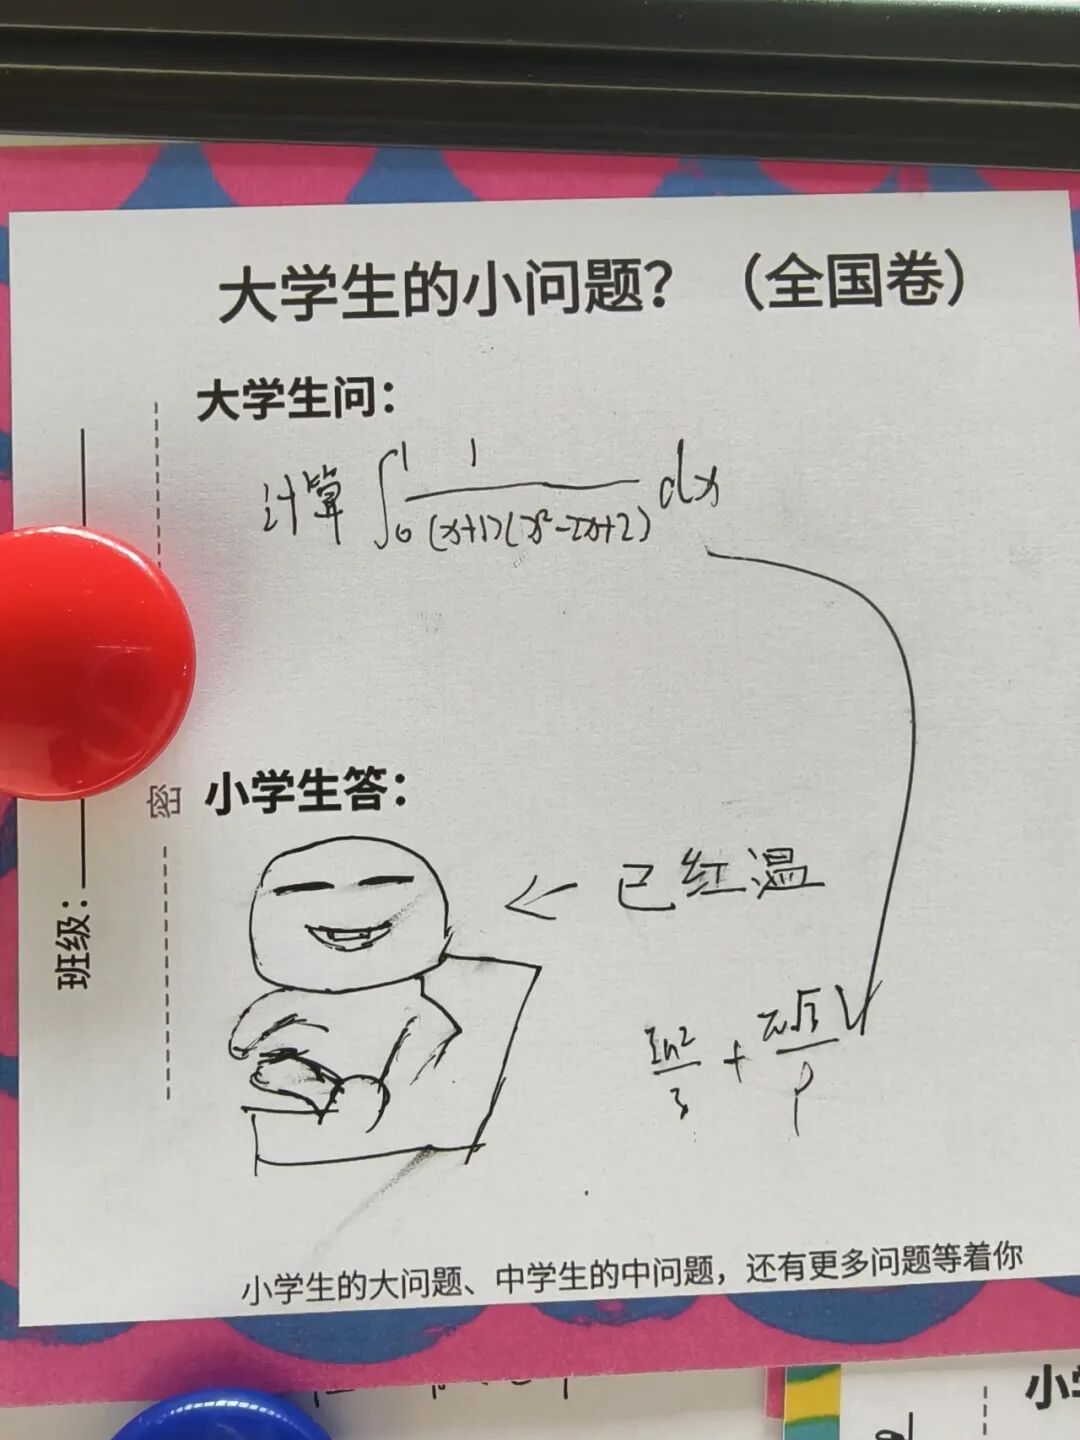 大学生的小问题？（全国卷）
大学生问：
计算 ∫₀¹ 1/((x+1)(x²-2x+2)) dx
小学生答：
← 已红温
ln2/3 + π√3/9
密
班级：
小学生的大问题、中学生的中问题，还有更多问题等着你
小学